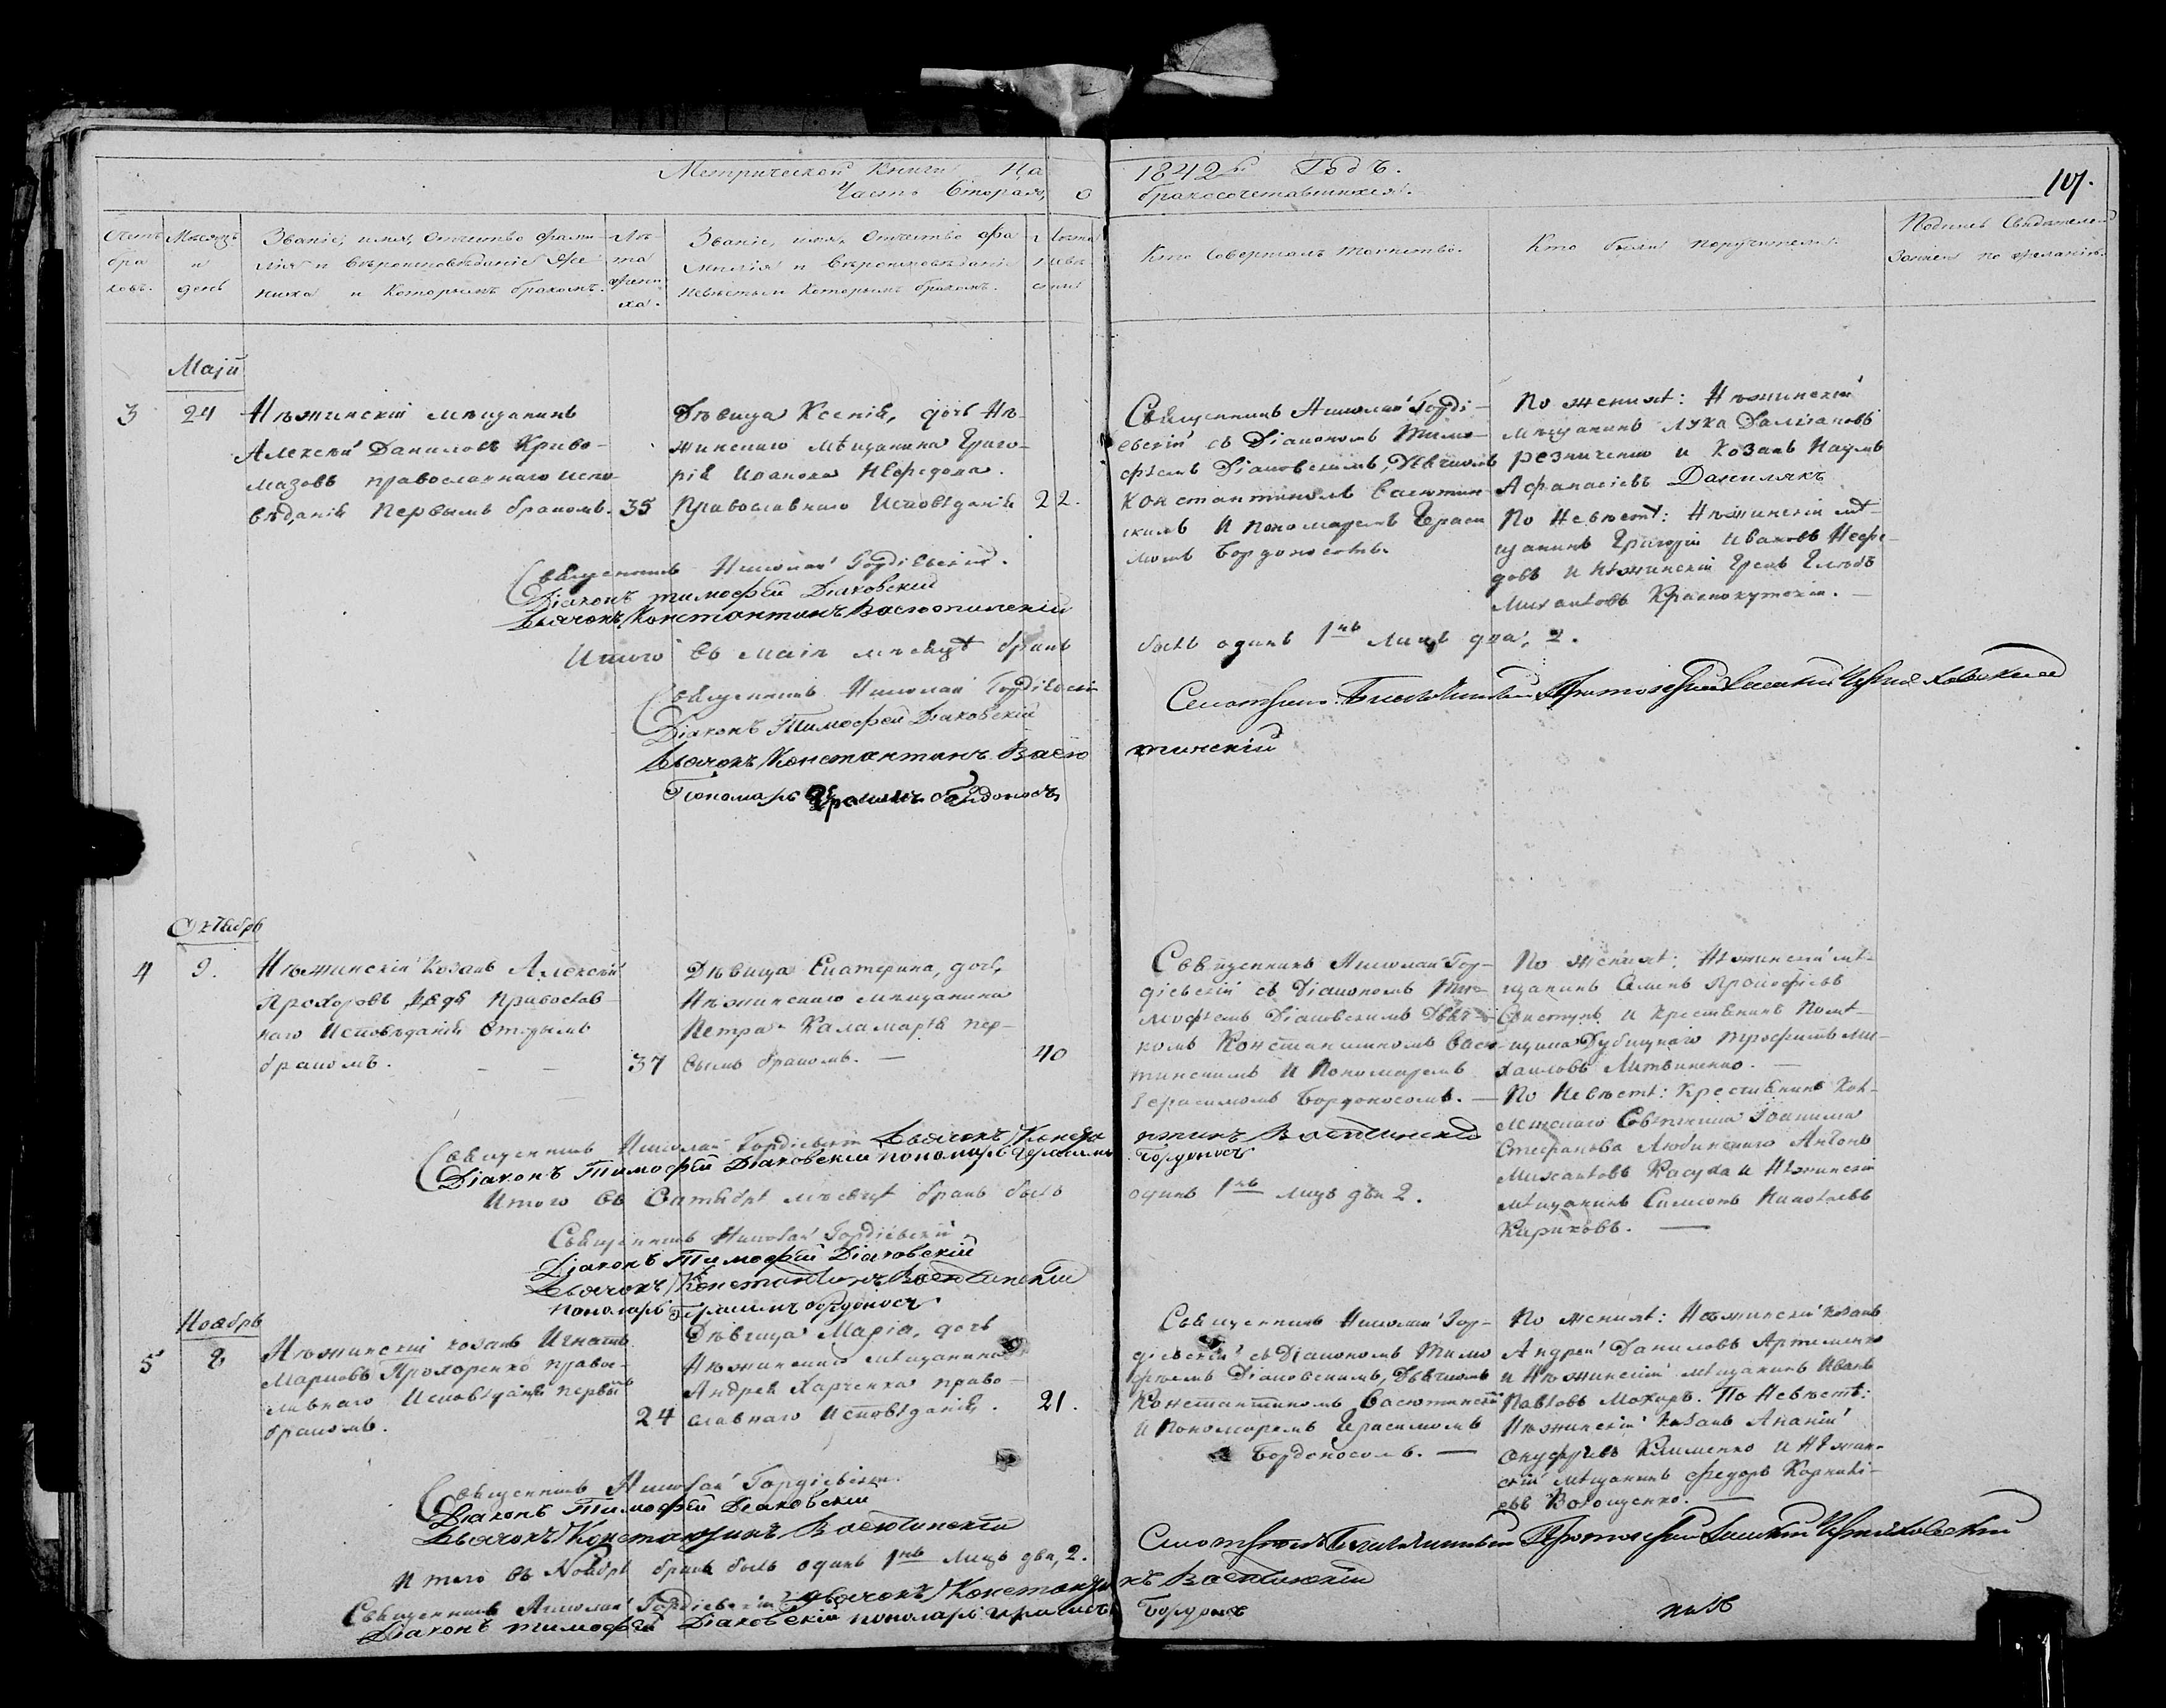 Метрической Книги На 1842й Годъ.
Часть Вторая, о бракосочетавшихся.
107.
Счетъ браковъ.
Мѣсяцъ и день
Званіе, имя, Отчество фамилія и Вѣроисповѣданіе Жениха и Которымъ бракомъ.
Лѣта жениха.
Званіе, имя, Отчество фамилія и Вѣроисповѣданіе Невѣсты и Которымъ бракомъ.
Лѣта невѣсты
Кто Совершалъ таинство.
Кто были поручители.
Подпись Свидѣтелей Записи по желанію.
Маій
3
24
Нѣжинскій мѣщанинъ
Алексѣй Даниловъ Криво-
мазовъ православнаго испо-
вѣданія Первымъ бракомъ.
35
Дѣвица Ксенія, дочь Нѣ-
жинскаго мѣщанина Григо-
рія Иванова Нефедова.
Православнаго Исповѣданія
22.
Священникъ Николай Горді-
евскій съ Діакономъ Тимо-
фѣемъ Діаковскимъ, Дьячкомъ
Константиномъ Васютин-
скимъ И пономаремъ Гераси
момъ Бордоносомъ.
По женихѣ: Нѣжинскій
мѣщанинъ Лука
и Козакъ Наумъ
Афанасіевъ Данилякъ
По Невѣстѣ: Нѣжинскій мѣ-
щанинъ Григорій Ивановъ Нефе-
довъ И Нѣжинскій Грекъ Глѣбъ
Михаиловъ Краснокутскій.
Священникъ Николай Гордіевскій.
Діаконъ Тимофей Діаковскій
Дьячокъ Константинъ Васютинскій
Итого въ Маіи мѣсяцѣ бракъ былъ одинъ 1нъ Лицъ два, 2.
Священникъ Николай Гордіевскій
Діаконъ Тимофей Діаковскій
Дьячокъ Константинъ Васютинскій
Пономарь Герасимъ Бордоносъ
Протоіерей
Октябрь
4
9.
Нѣжинскій Козакъ Алексѣй
Прохоровъ православ-
наго Исповѣданія Вторымъ
бракомъ.
37
Дѣвица Екатерина, дочь,
Нѣжинскаго мѣщанина
Петра Каламарія пер-
вымъ бракомъ.
40
Священникъ Николай Гор-
діевскій съ Діакономъ Ти-
мофѣемъ Діаковскимъ Дьяч-
комъ Константиномъ Васю-
тинскимъ И Пономаремъ
Герасимомъ Бордоносомъ.
По женихѣ: Нѣжинскій мѣ-
щанинъ Семенъ Прокофіевъ
и Крестьянинъ Помѣ-
щика Трофимъ Ми-
хаиловъ Литвиненко.
По Невѣстѣ: Крестьянинъ
Стефанова Антонъ
Михаиловъ Касуха и Нѣжинскій
мѣщанинъ Симеонъ Николаевъ
Кириковъ.
Священникъ Николай Гордіевскій Дьячокъ Константинъ Васютинскій
Діаконъ Тимофей Діаковскій пономарь Герасимъ Бордоносъ
Итого въ Октябрѣ мѣсяцѣ бракъ былъ одинъ 1нъ Лицъ два 2.
Священникъ Николай Гордіевскій
Діаконъ Тимофей Діаковскій
Дьячокъ Константинъ Васютинскій
пономарь Герасимъ Бордоносъ
Ноябрь
5
8
Нѣжинскій козакъ Игнатъ
Марковъ Прохоренко право-
славнаго Исповѣданія первымъ
бракомъ.
24
Дѣвица Марія, дочь
Нѣжинскаго мѣщанина
Андрея Харченка право-
славнаго Исповѣданія.
21.
Священникъ Николай Гор-
діевскій съ Діакономъ Тимо
фѣемъ Діаковскимъ, Дьячкомъ
Константиномъ Васютинскимъ
И Пономаремъ Герасимомъ
Бордоносомъ.
По женихѣ: Нѣжинскій козакъ
Андрей Даниловъ Артименко
и Нѣжинскій мѣщанинъ Иванъ
Павловъ Мохиръ. По Невѣстѣ:
Нѣжинскій Козакъ Ананій
Онуфріевъ Клименко и Нѣжин-
скій мѣщанинъ Федоръ Корнилі-
евъ Волощенко.
Священникъ Николай Гордіевскій.
Діаконъ Тимофей Діаковскій
Дьячокъ Константинъ Васютинскій
Итого въ Ноябрѣ бракъ былъ одинъ 1нъ Лицъ два, 2.
Протоіерей
Священникъ Николай Гордіевскій Дьячокъ Константинъ Васютинскій
Діаконъ Тимофей Діаковскій пономарь Герасимъ Бордоносъ